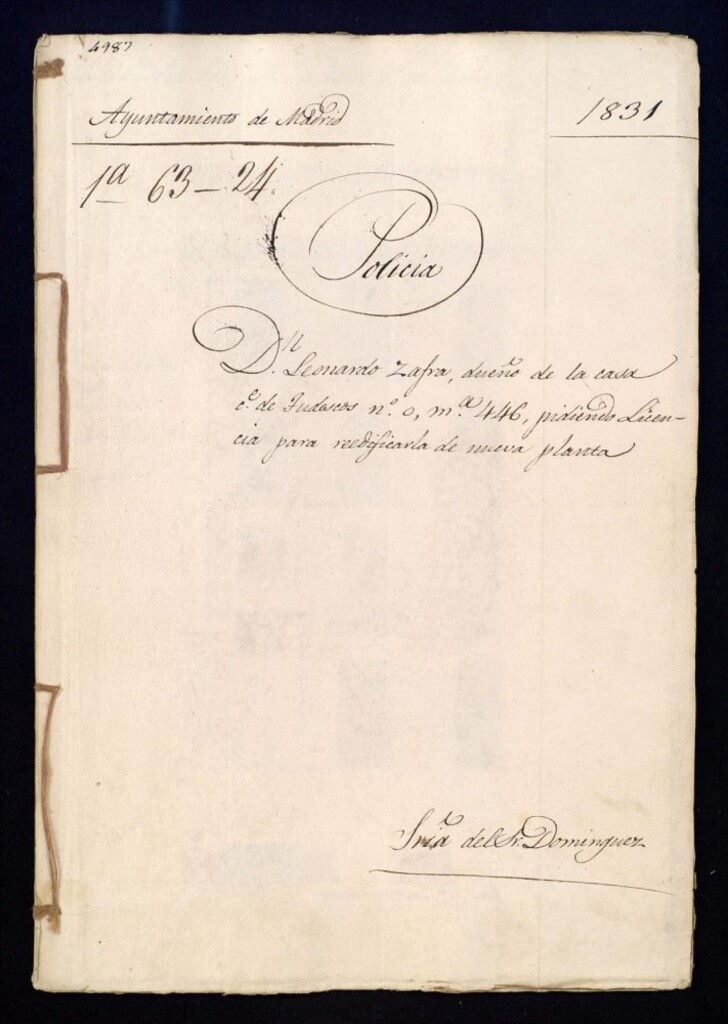 4987
Ayuntamiento de Madrid
1831
1ª 63-24.
Policia
Dⁿ. Leonardo Zafra, dueño de la casa
c.ᵉ de Tudescos nº. 0, m.ª 446, pidiendo Licen-
cia para reedificarla de nueva planta
Sriᵃ del Sr. Dominguez